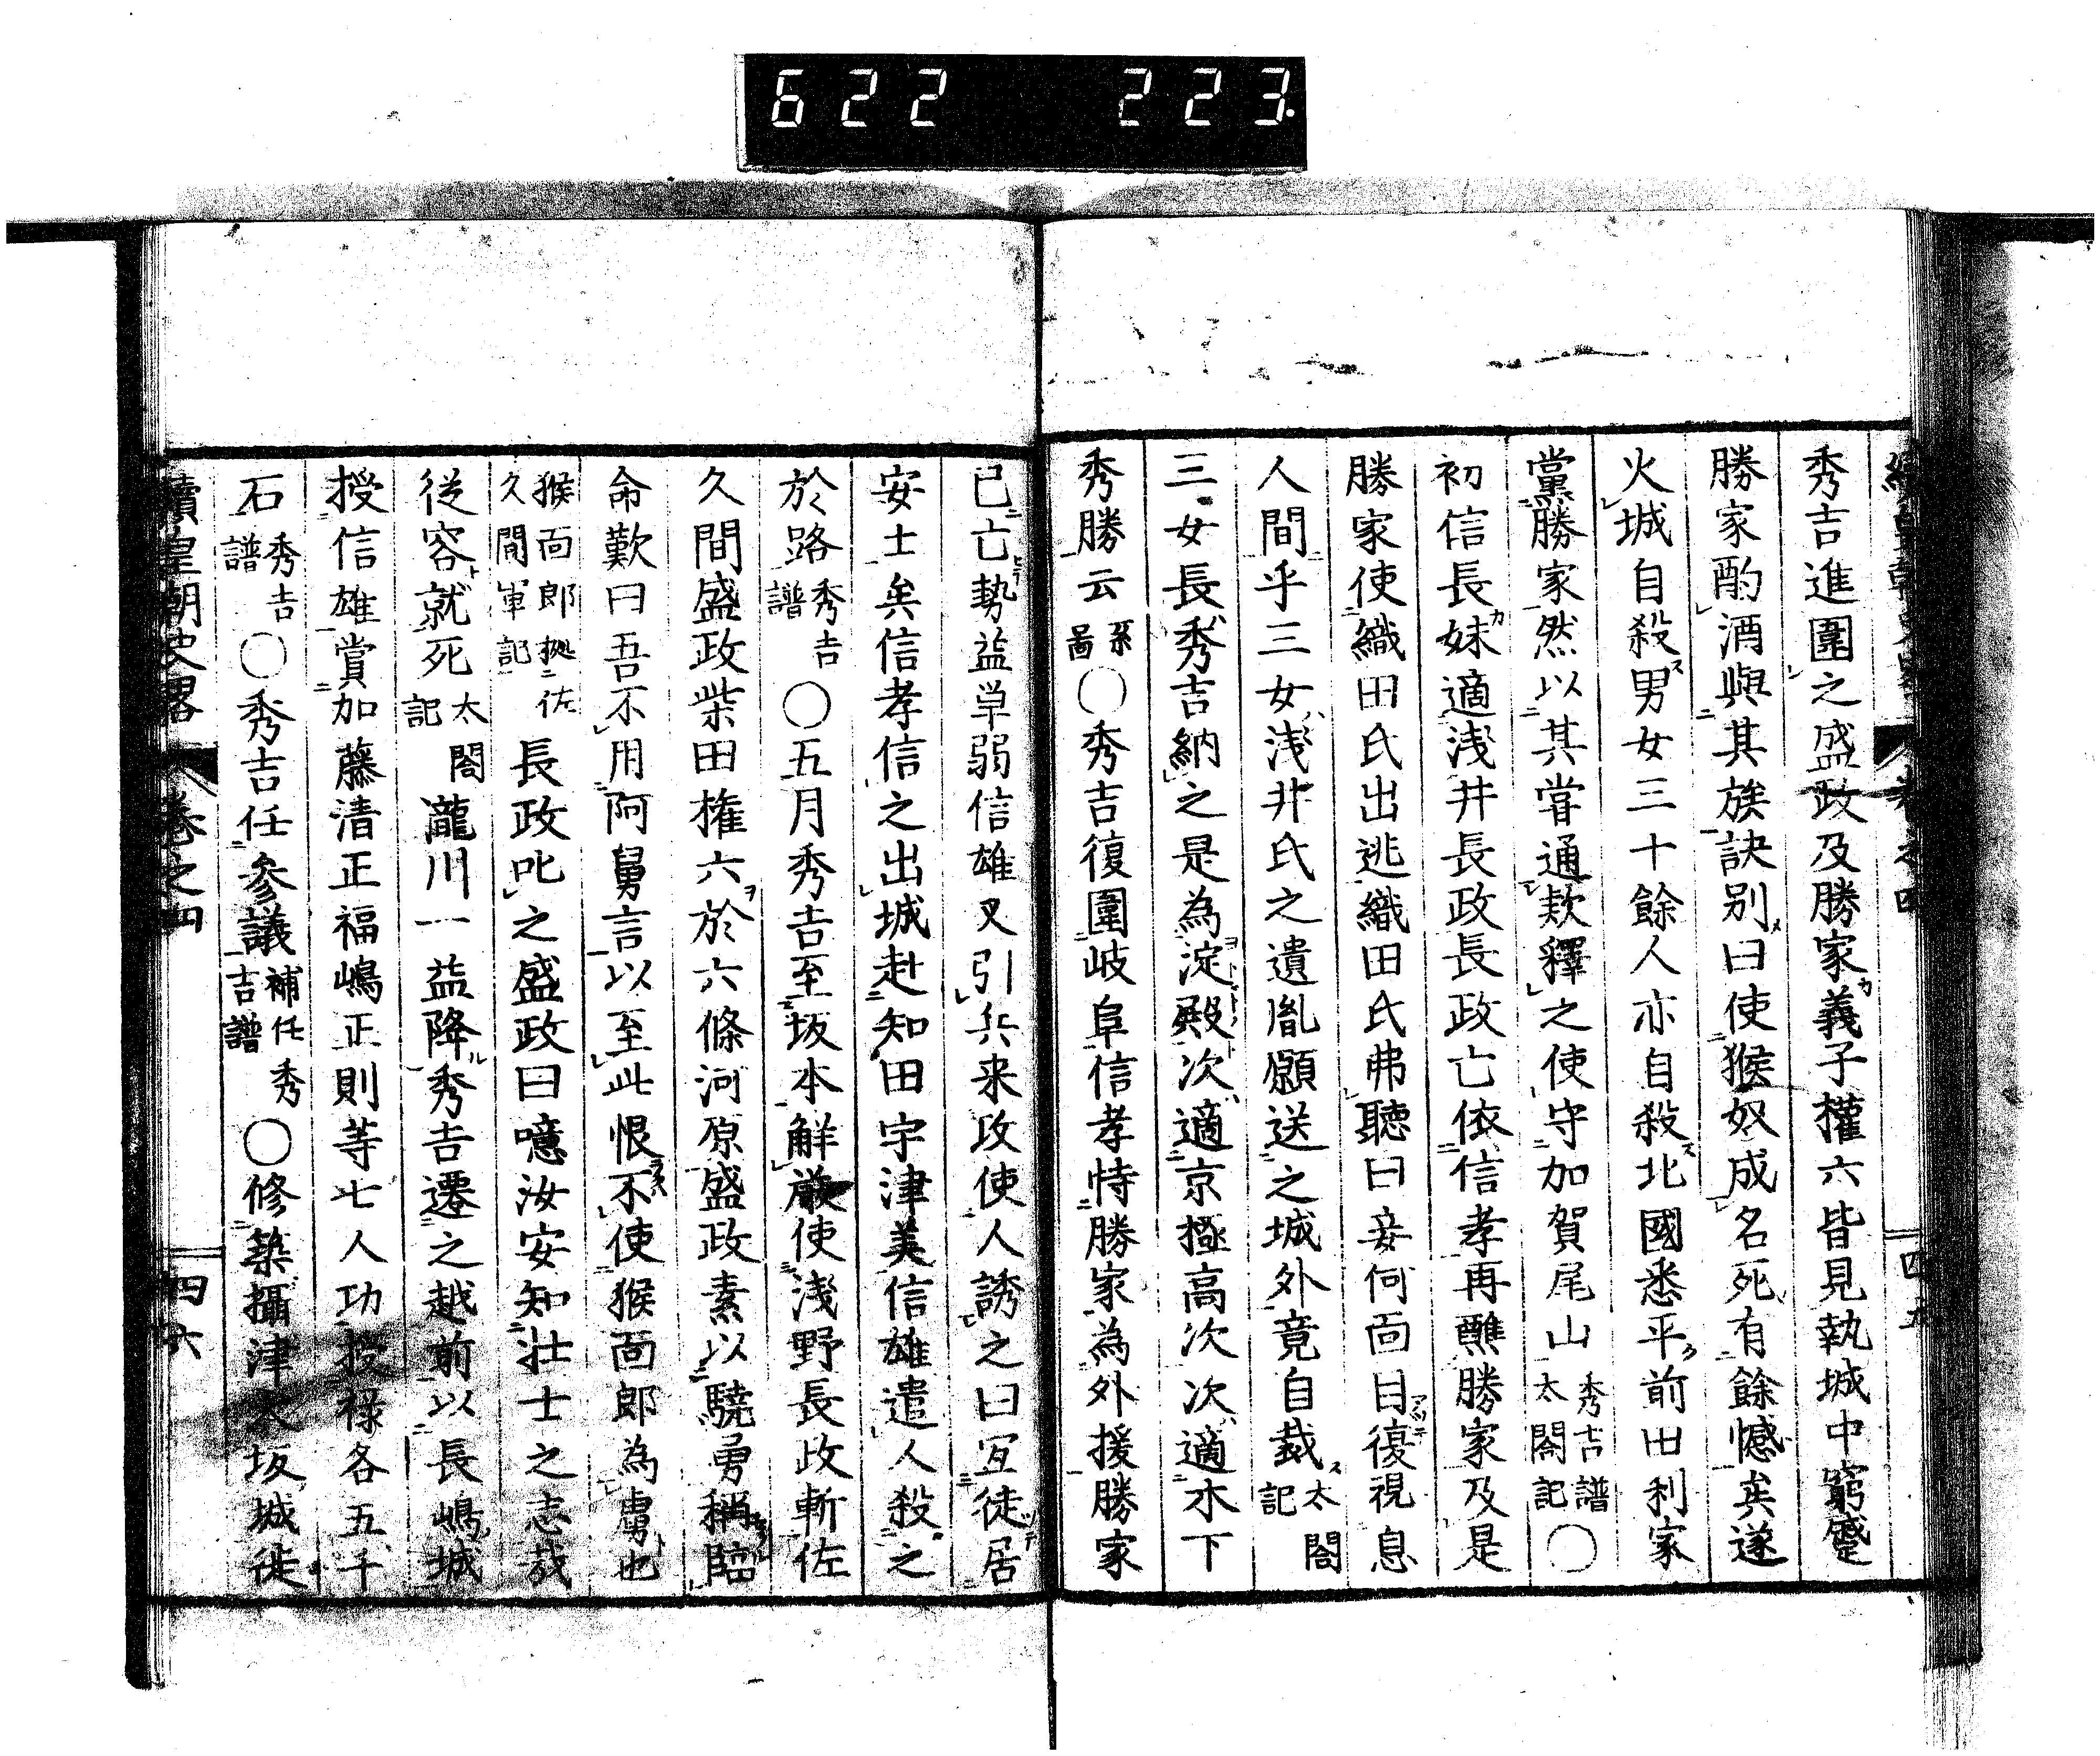 622 223.
續皇朝史畧 卷之四 四五
秀吉進圍之盛政及勝家義子權六皆見執城中窮蹙
勝家酌酒與其族訣别曰使猴奴成名死有餘憾矣遂
火城自殺男女三十餘人亦自殺北國悉平前田利家
黨勝家然以其甞通欵釋之使守加賀尾山秀吉譜太閤記〇
初信長妹適浅井長政長政亡依信孝再醮勝家及是
勝家使織田氏出逃織田氏弗聴曰妾何面目復視息
人間乎三女浅井氏之遺胤願送之城外竟自裁太閤記
三女長秀吉納之是為淀殿次適京極高次次適水下
秀勝云系啚〇秀吉復圍岐阜信孝恃勝家為外援勝家
已亡勢益単弱信雄又引兵来攻使人誘之曰宜徒居
安士矣信孝信之出城赴知田宇津美信雄遣人殺之
於路秀吉譜〇五月秀吉至坂本解厳使浅野長政斬佐
久間盛政柴田権六於六條河原盛政素以驍勇稱臨
命歎曰吾不用阿舅言以至此恨不使猴面郎為虜也
猴面郎拠佐久間軍記長政叱之盛政曰噫汝安知壮士之志哉
従容就死太閤記瀧川一益降秀吉遷之越前以長嶋城
授信雄賞加藤清正福嶋正則等七人功授禄各五千
石秀吉譜〇秀吉任参議補任秀吉譜〇修築攝津大坂城徙
續皇朝史畧 卷之四 四六